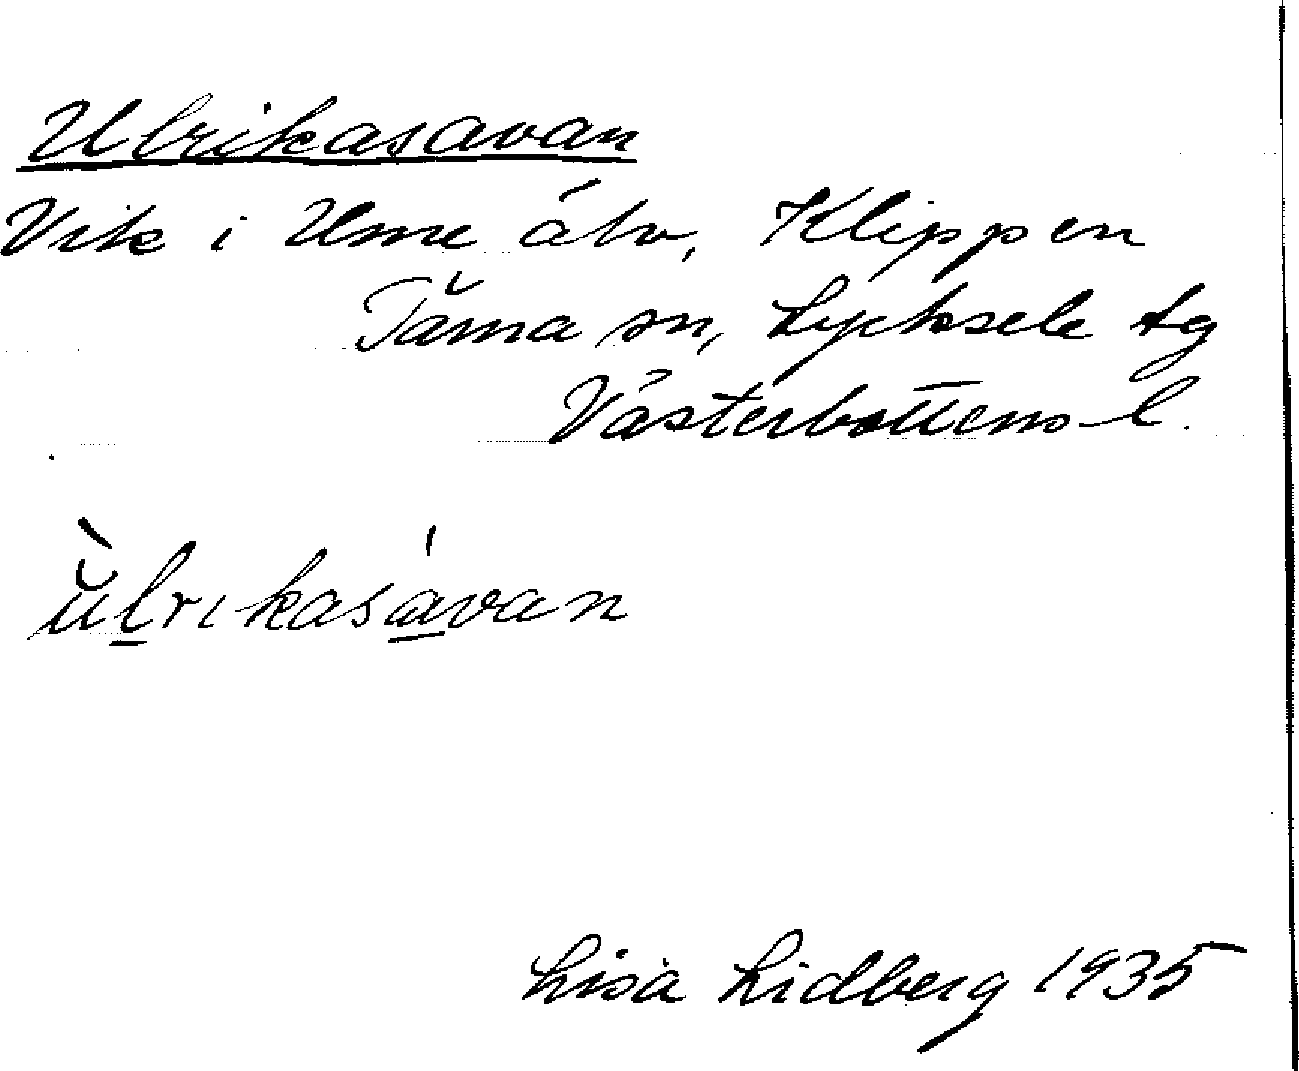 Ulrikasavan
Vik i Ume älv, Klippen
Tärna sn, Lycksele tg
Västerbottens l.
ŭ̀lrıkasávan
Lisa Lidberg 1935